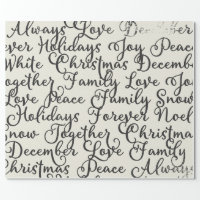 Always Love December
ever Holidays Joy Peace
White Christmas December
ogether Family Love Jo
Love Peace Family Snow
Holidays Forever Noel
now Together Christma
December Love Family
hristmas Peace Always